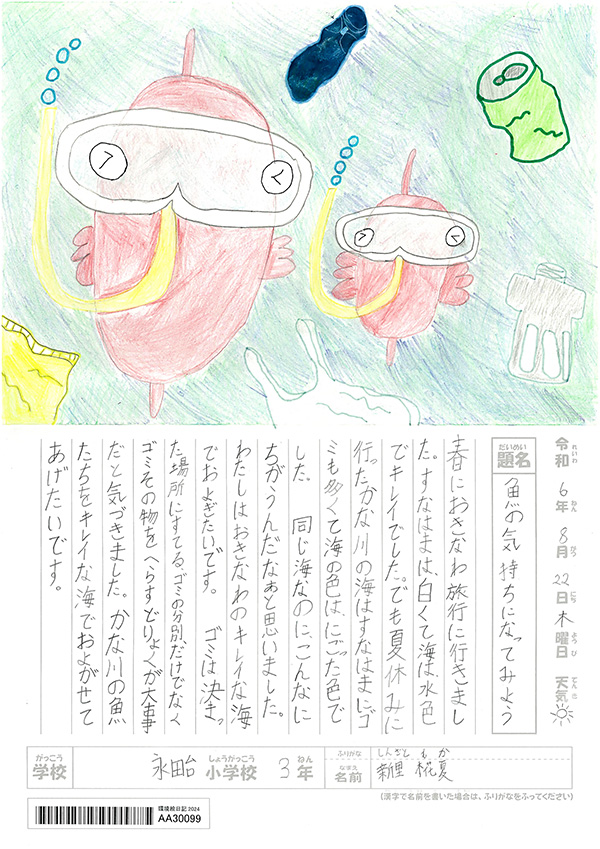 令和 6年 8月 22日 木曜日 天気
れいわ ねん がつ にち よう び てん き
題名 魚の気持ちになってみよう
だいめい
春におきなわ旅行に行きまし
た。すなはまは、白くて海は、水色
でキレイでした。でも夏休みに
行ったかな川の海はすなはまにゴ
ミも多くて海の色は、にごった色で
した。 同じ海なのに、こんなに
ちがうんだなぁと思いました。
わたしはおきなわのキレイな海
でおよぎたいです。 ゴミは決まっ
た場所にすてる、ゴミの分別、だけでなく
ゴミその物をへらすどりょくが大事
だと気づきました。かな川の魚
たちをキレイな海でおよがせて
あげたいです。
がっこう しょうがっこう ねん ふりがな しんざと もか
学校 永田台 小学校 3年 名前 新里 桜夏
なまえ
(漢字で名前を書いた場合は、ふりがなをふってください)
環境絵日記 2024
AA30099